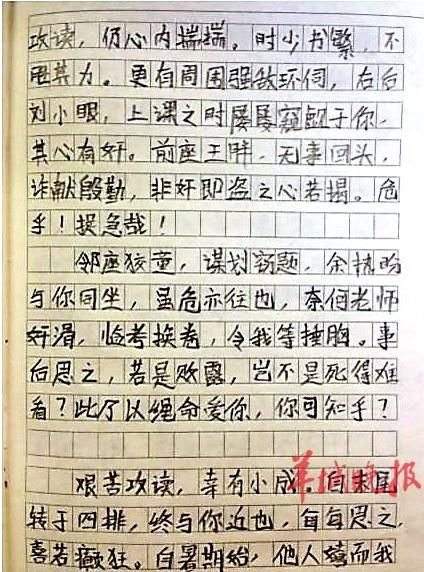 攻读，仍心内揣揣。时少书繁，不
胜其力。更有周围强敌环伺，右后
刘小眼，上课之时屡屡窥觎于你，
其心有奸。前座王胖，无事回头，
诈献殷勤，非奸即盗之心若揭。危
乎！捉急哉！
邻座狡童，谋划窃题，余
与你同坐，虽危亦往也，奈何老师
奸滑，临考换卷，令我等捶胸。事
后思之，若是败露，岂不是死得难
看？此乃以绳命爱你，你可知乎？
羊城晚报
艰苦攻读，幸有小成。自末尾
转于四排，终与你近也，每每思之，
喜若癫狂。自暑期始，他人嬉而我